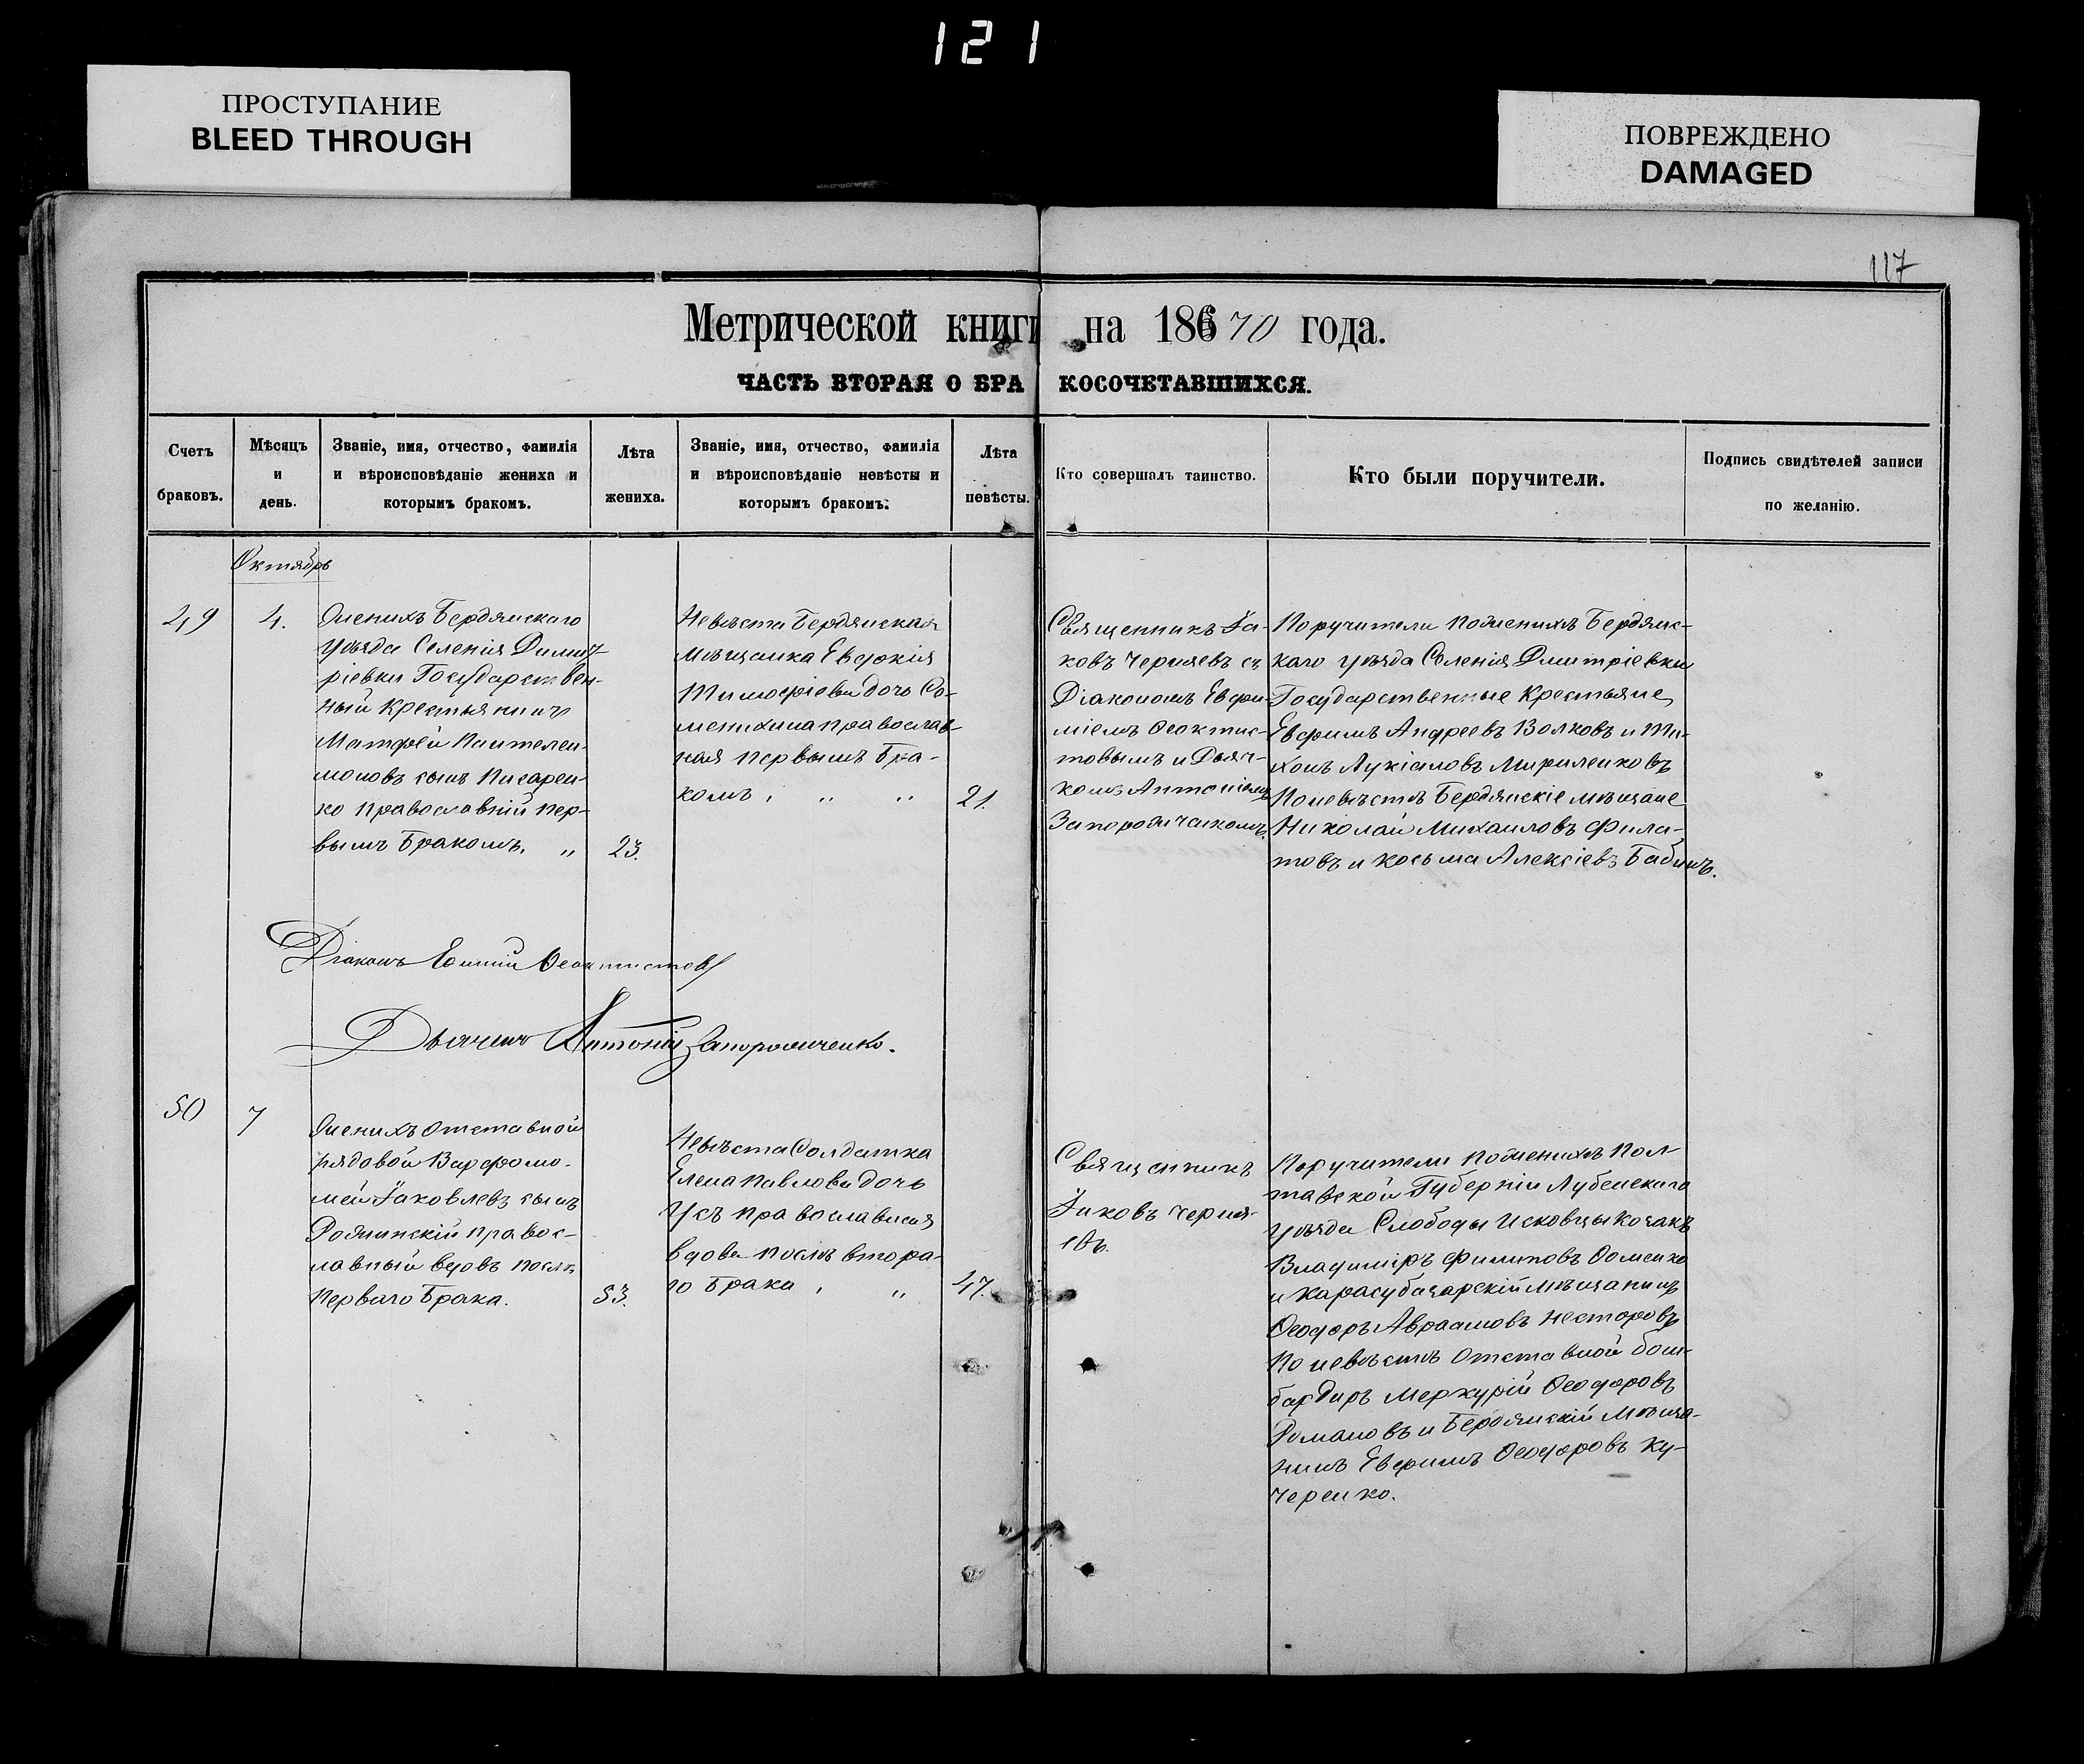 121
ПРОСТУПАНИЕ
BLEED THROUGH
ПОВРЕЖДЕНО
DAMAGED
117
Метрической книги на 18670 года.
ЧАСТЬ ВТОРАЯ О БРАКОСОЧЕТАВШИХСЯ.
Счетъ
браковъ.
Мѣсяцъ
и
день.
Званіе, имя, отчество, фамилія
и вѣроисповѣданіе жениха и
которымъ бракомъ.
Лѣта
жениха.
Званіе, имя, отчество, фамилія
и вѣроисповѣданіе невѣсты и
которымъ бракомъ.
Лѣта
невѣсты.
Кто совершалъ таинство.
Кто были поручители.
Подпись свидѣтелей записи
по желанію.
Октябрь
49
4.
Женихъ Бердянскаго
уѣзда Селенія Димит
ріевки Государствен-
ный Крестьянинъ
Матфей Пантелеи-
моновъ сынъ Писарен-
ко Православный пер-
вымъ Бракомъ. „
23.
Невѣста Бердянская
Мѣщанка Евдокія
Тимофіева дочь Со-
менихина православ-
ная первымъ Бра-
комъ, „ „
21.
Священникъ Іа-
ковъ Черняевъ съ
Діакономъ Евфи-
міемъ Феоктис-
товымъ и Дьяч-
комъ Антоніемъ
Запорожченкомъ.
Поручители Поженихѣ Бердянс-
каго уѣзда Селенія Дмитріевки
Государственные Крестьяне
Евфимъ Андреевъ Волковъ и Ти-
хонъ Лукіановъ Мириленковъ
Поневѣстѣ Бердянскіе мѣщане
Николай Михаиловъ Фила-
товъ и Косьма Алексіевъ Бабичъ.
Діаконъ Евфимій Феоктистовъ
Дьячекъ Антоній Запорожченко.
50
7
Женихъ Отставной
рядовой Варфоло-
мей Іаковлевъ сынъ
Рожинскій Правос-
лавный вдовъ послѣ
Перваго Брака.
53.
Невѣста Солдатка
Елена Павлова дочь
Усъ православная
вдова послѣ втора-
го Брака, „
47.
Священникъ
Іаковъ Черня-
евъ.
Поручители Поженихѣ Пол-
тавской Губерніи Лубенскаго
уѣзда Слободы Исковцы Козакъ
Владиміръ Филиповъ Фоменко
и Карасубазарскій мѣщанинъ
Феодоръ Авраамовъ Несторовъ
По невѣстѣ Отставной бом-
бардиръ Меркурій Феодоровъ
Романовъ и Бердянскій Мѣща-
нинъ Евфимъ Феодоровъ Ку-
черенко.